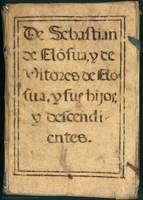 De Sebastian
de Elôsua, y de
Vitores de Elo
sua, y sus hijos,
y descendi-
entes.